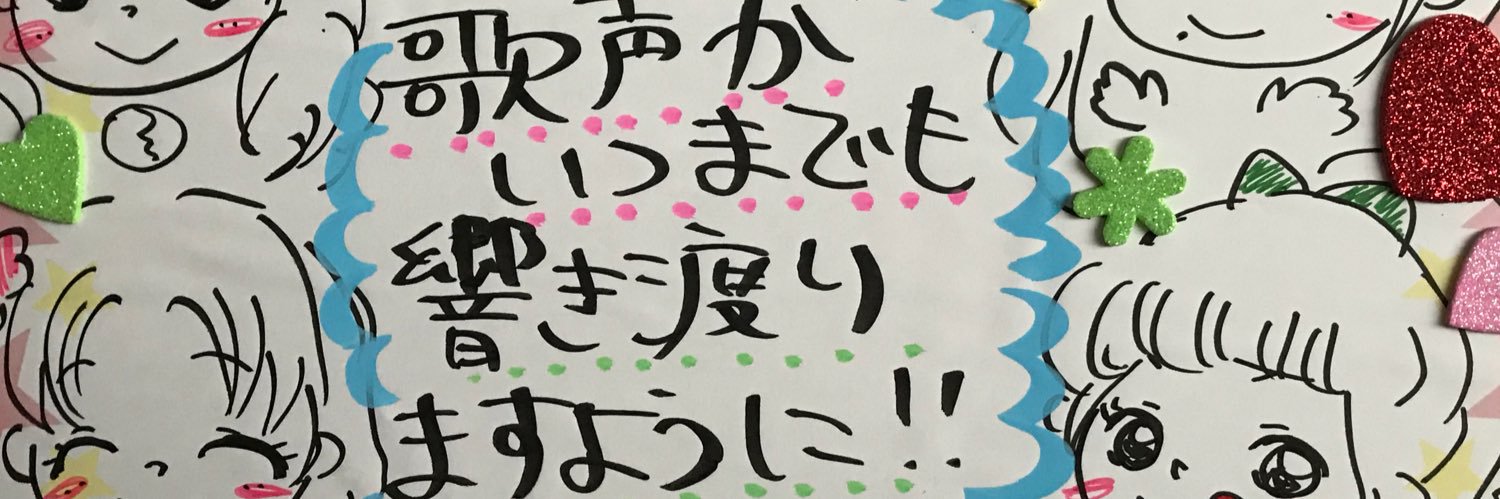 歌声か
いつまでも
響き渡り
ますように!!